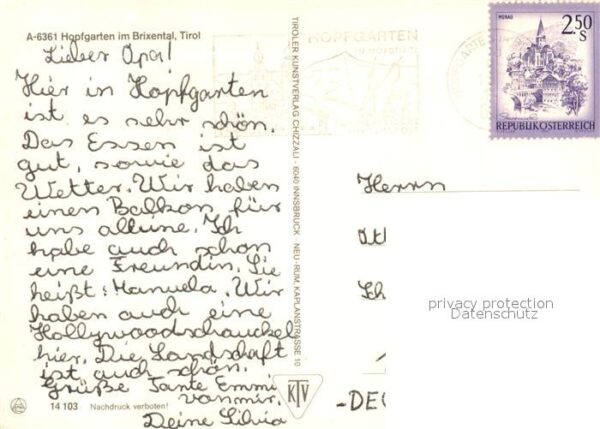 A-6361 Hopfgarten im Brixental, Tirol
Lieber Opa!
Hier in Hopfgarten
ist es sehr schön.
Das Essen ist
gut, sowie das
Wetter. Wir haben
einen Balkon für
uns alleine. Ich
habe auch schon
eine Freundin. Sie
heißt: Manuela. Wir
haben auch eine
Hollywoodschauckel
hier. Die Landschaft
ist auch schön.
Grüße Tante Emmi
von mir.
Deine Silvia
14 103 Nachdruck verboten!
TIROLER KUNSTVERLAG CHIZZALI · 6040 INNSBRUCK · NEU-RUM, KAPLANSTRASSE 10
KTV
HOPFGARTEN
MURAU
2.50
S
REPUBLIK ÖSTERREICH
Herrn
privacy protection
Datenschutz